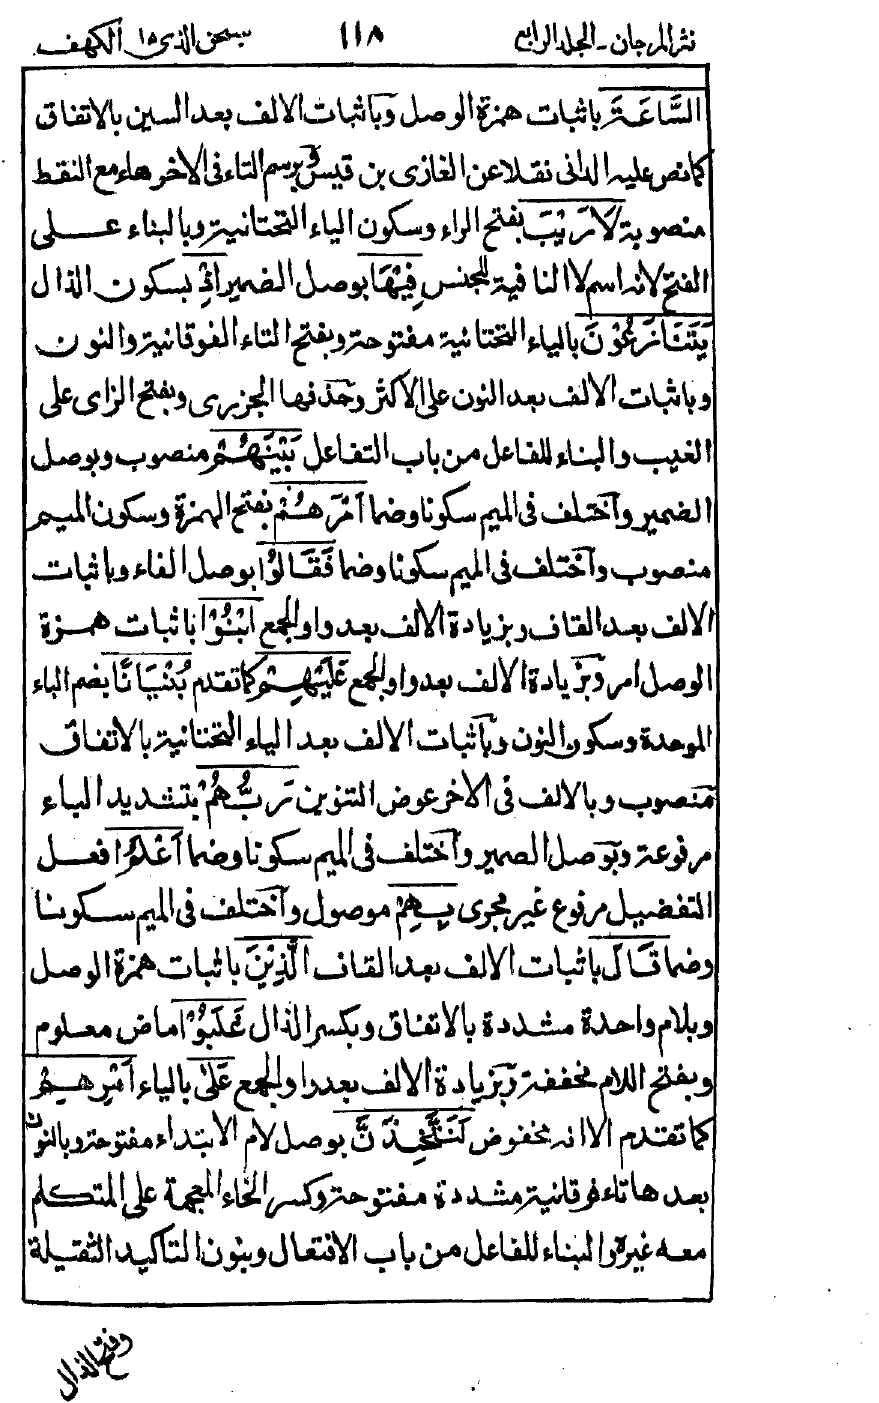 نثر المرجان ـ المجلد الرابع ١١٨ سبحن الذی ١٥ الکهف
السَّاعَةَ باثبات همزة الوصل وباثبات الالف بعد السین بالاتفاق
کما نص علیه الدانی نقلا عن الغازی بن قیس وبرسم التاء فی الاخر هاء مع النقط
منصوبة لَارَیْبَ بفتح الراء وسکون الیاء التحتانیة وبالبناء علی
الفتح لانه اسم لا النافیة للجنس فِیْهَا بوصل الضمیر اذْ بسکون الذال
یَتَنَازَعُوْنَ بالیاء التحتانیة مفتوحة وبفتح التاء الفوقانیة والنون
وباثبات الالف بعد النون علی الاکثر وحذفها الجزری وبفتح الزای علی
الغیب والبناء للفاعل من باب التفاعل بَیْنَهُمْ منصوب وبوصل
الضمیر واختلف فی المیم سکونا وضما اَمْرَهُمْ بفتح الهمزة وسکون المیم
منصوب واختلف فی المیم سکونا وضما فَقَالُوْا بوصل الفاء وباثبات
الالف بعد القاف وبزیادة الالف بعد واو الجمع ابْنُوْا باثبات همزة
الوصل امر وبزیادة الالف بعد واو الجمع عَلَیْهِمْ کما تقدم بُنْیَانًا بضم الباء
الموحدة وسکون النون وباثبات الالف بعد الیاء التحتانیة بالاتفاق
منصوب وبالالف فی الاخر عوض التنوین رَبُّهُمْ بتشدید الباء
مرفوعة وبوصل الضمیر واختلف فی المیم سکونا وضما اَعْلَمُ افعل
التفضیل مرفوع غیر مجری بِهِمْ موصول واختلف فی المیم سکونا
وضما قَالَ باثبات الالف بعد القاف الَّذِیْنَ باثبات همزة الوصل
وبلام واحدة مشددة بالاتفاق وبکسر الذال غَلَبُوْا ماض معلوم
وبفتح اللام مخففة وبزیادة الالف بعد واو الجمع عَلٰی بالیاء اَمْرِهِمْ
کما تقدم الا انه مخفوض لَنَتَّخِذَنَّ بوصل لام الابتداء مفتوحة وبالنون
بعدها تاء فوقانیة مشددة مفتوحة وکسر الخاء المعجمة علی المتکلم
معه غیره والبناء للفاعل من باب الافتعال وبنون التاکید الثقیلة
وفتح الذال